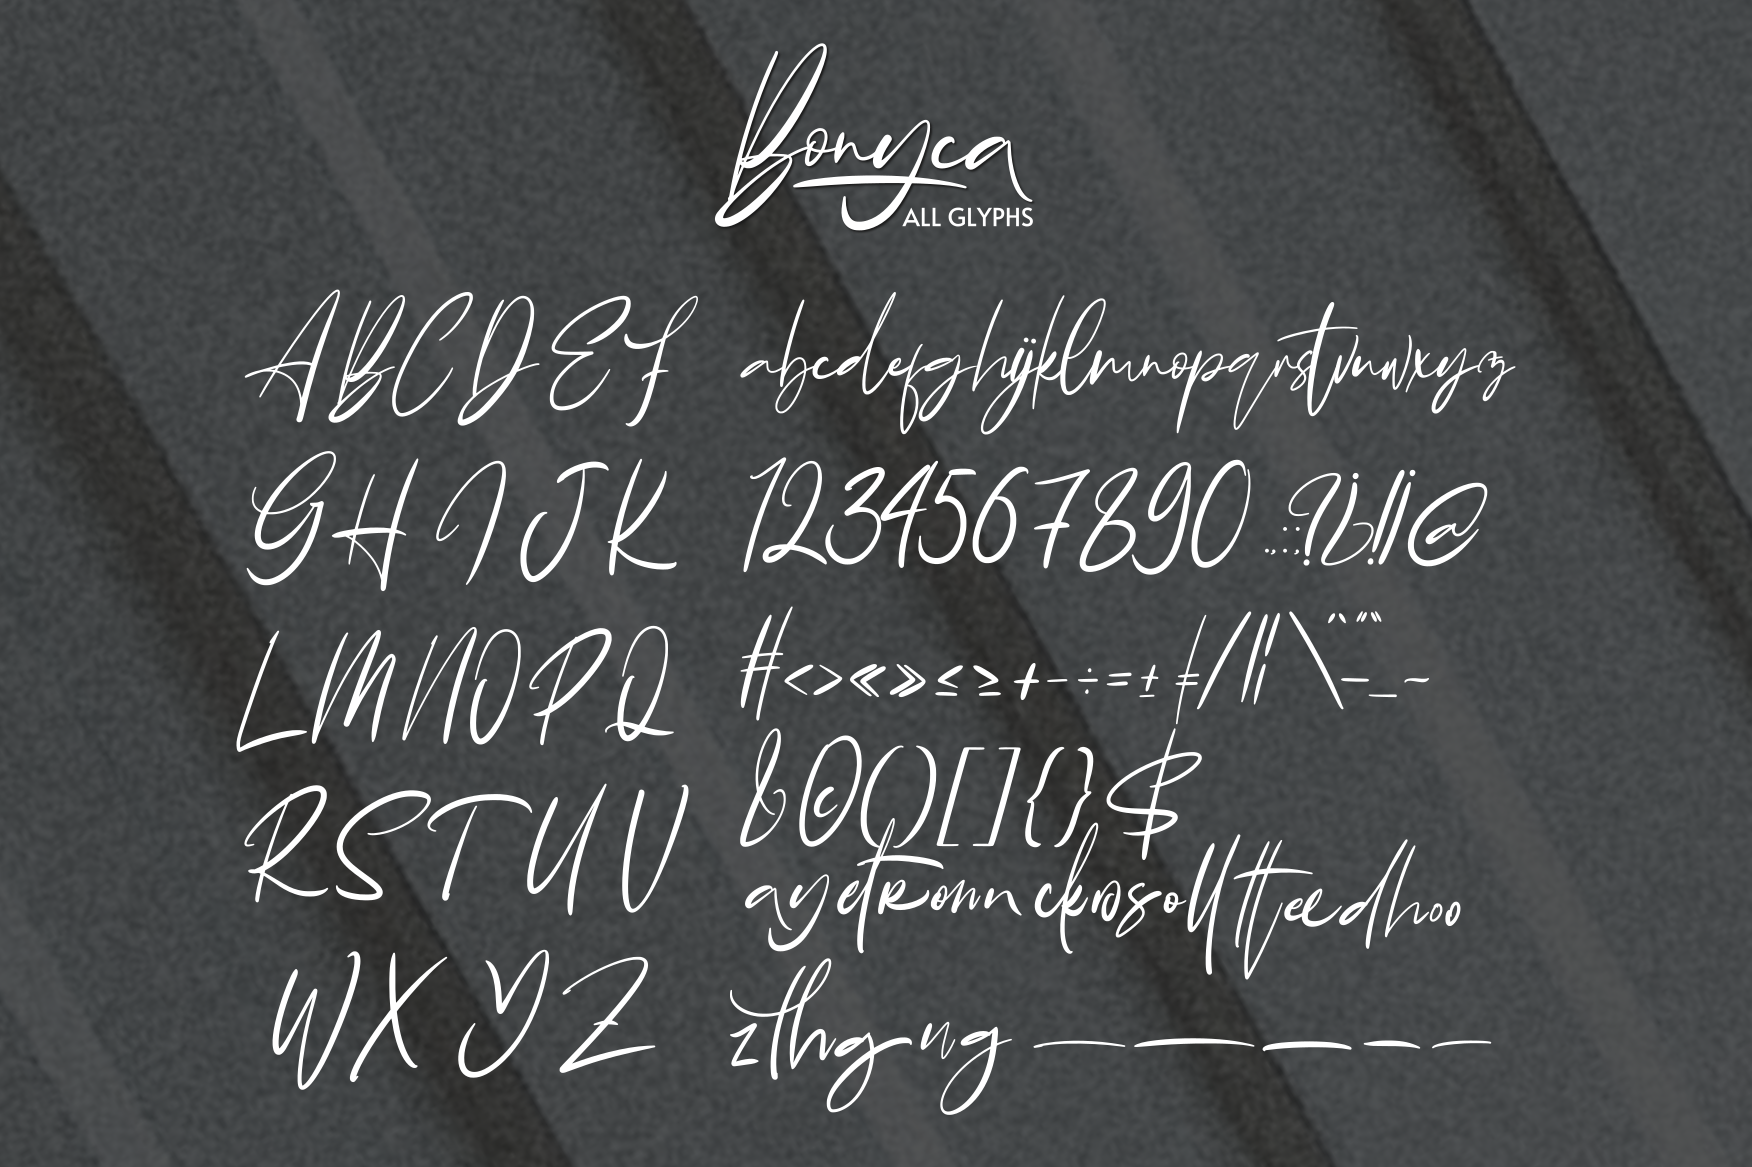 Bonyca
ALL GLYPHS
ABCDEF
GHIJK
LMNOPQ
RSTUV
WXYZ
abcdefghijklmnopqrstuvwxyz
1234567890 .,:;?¿!¡@
#<>«»≤≥+-÷=±≠/|¦\-_~
&©()[]{}$